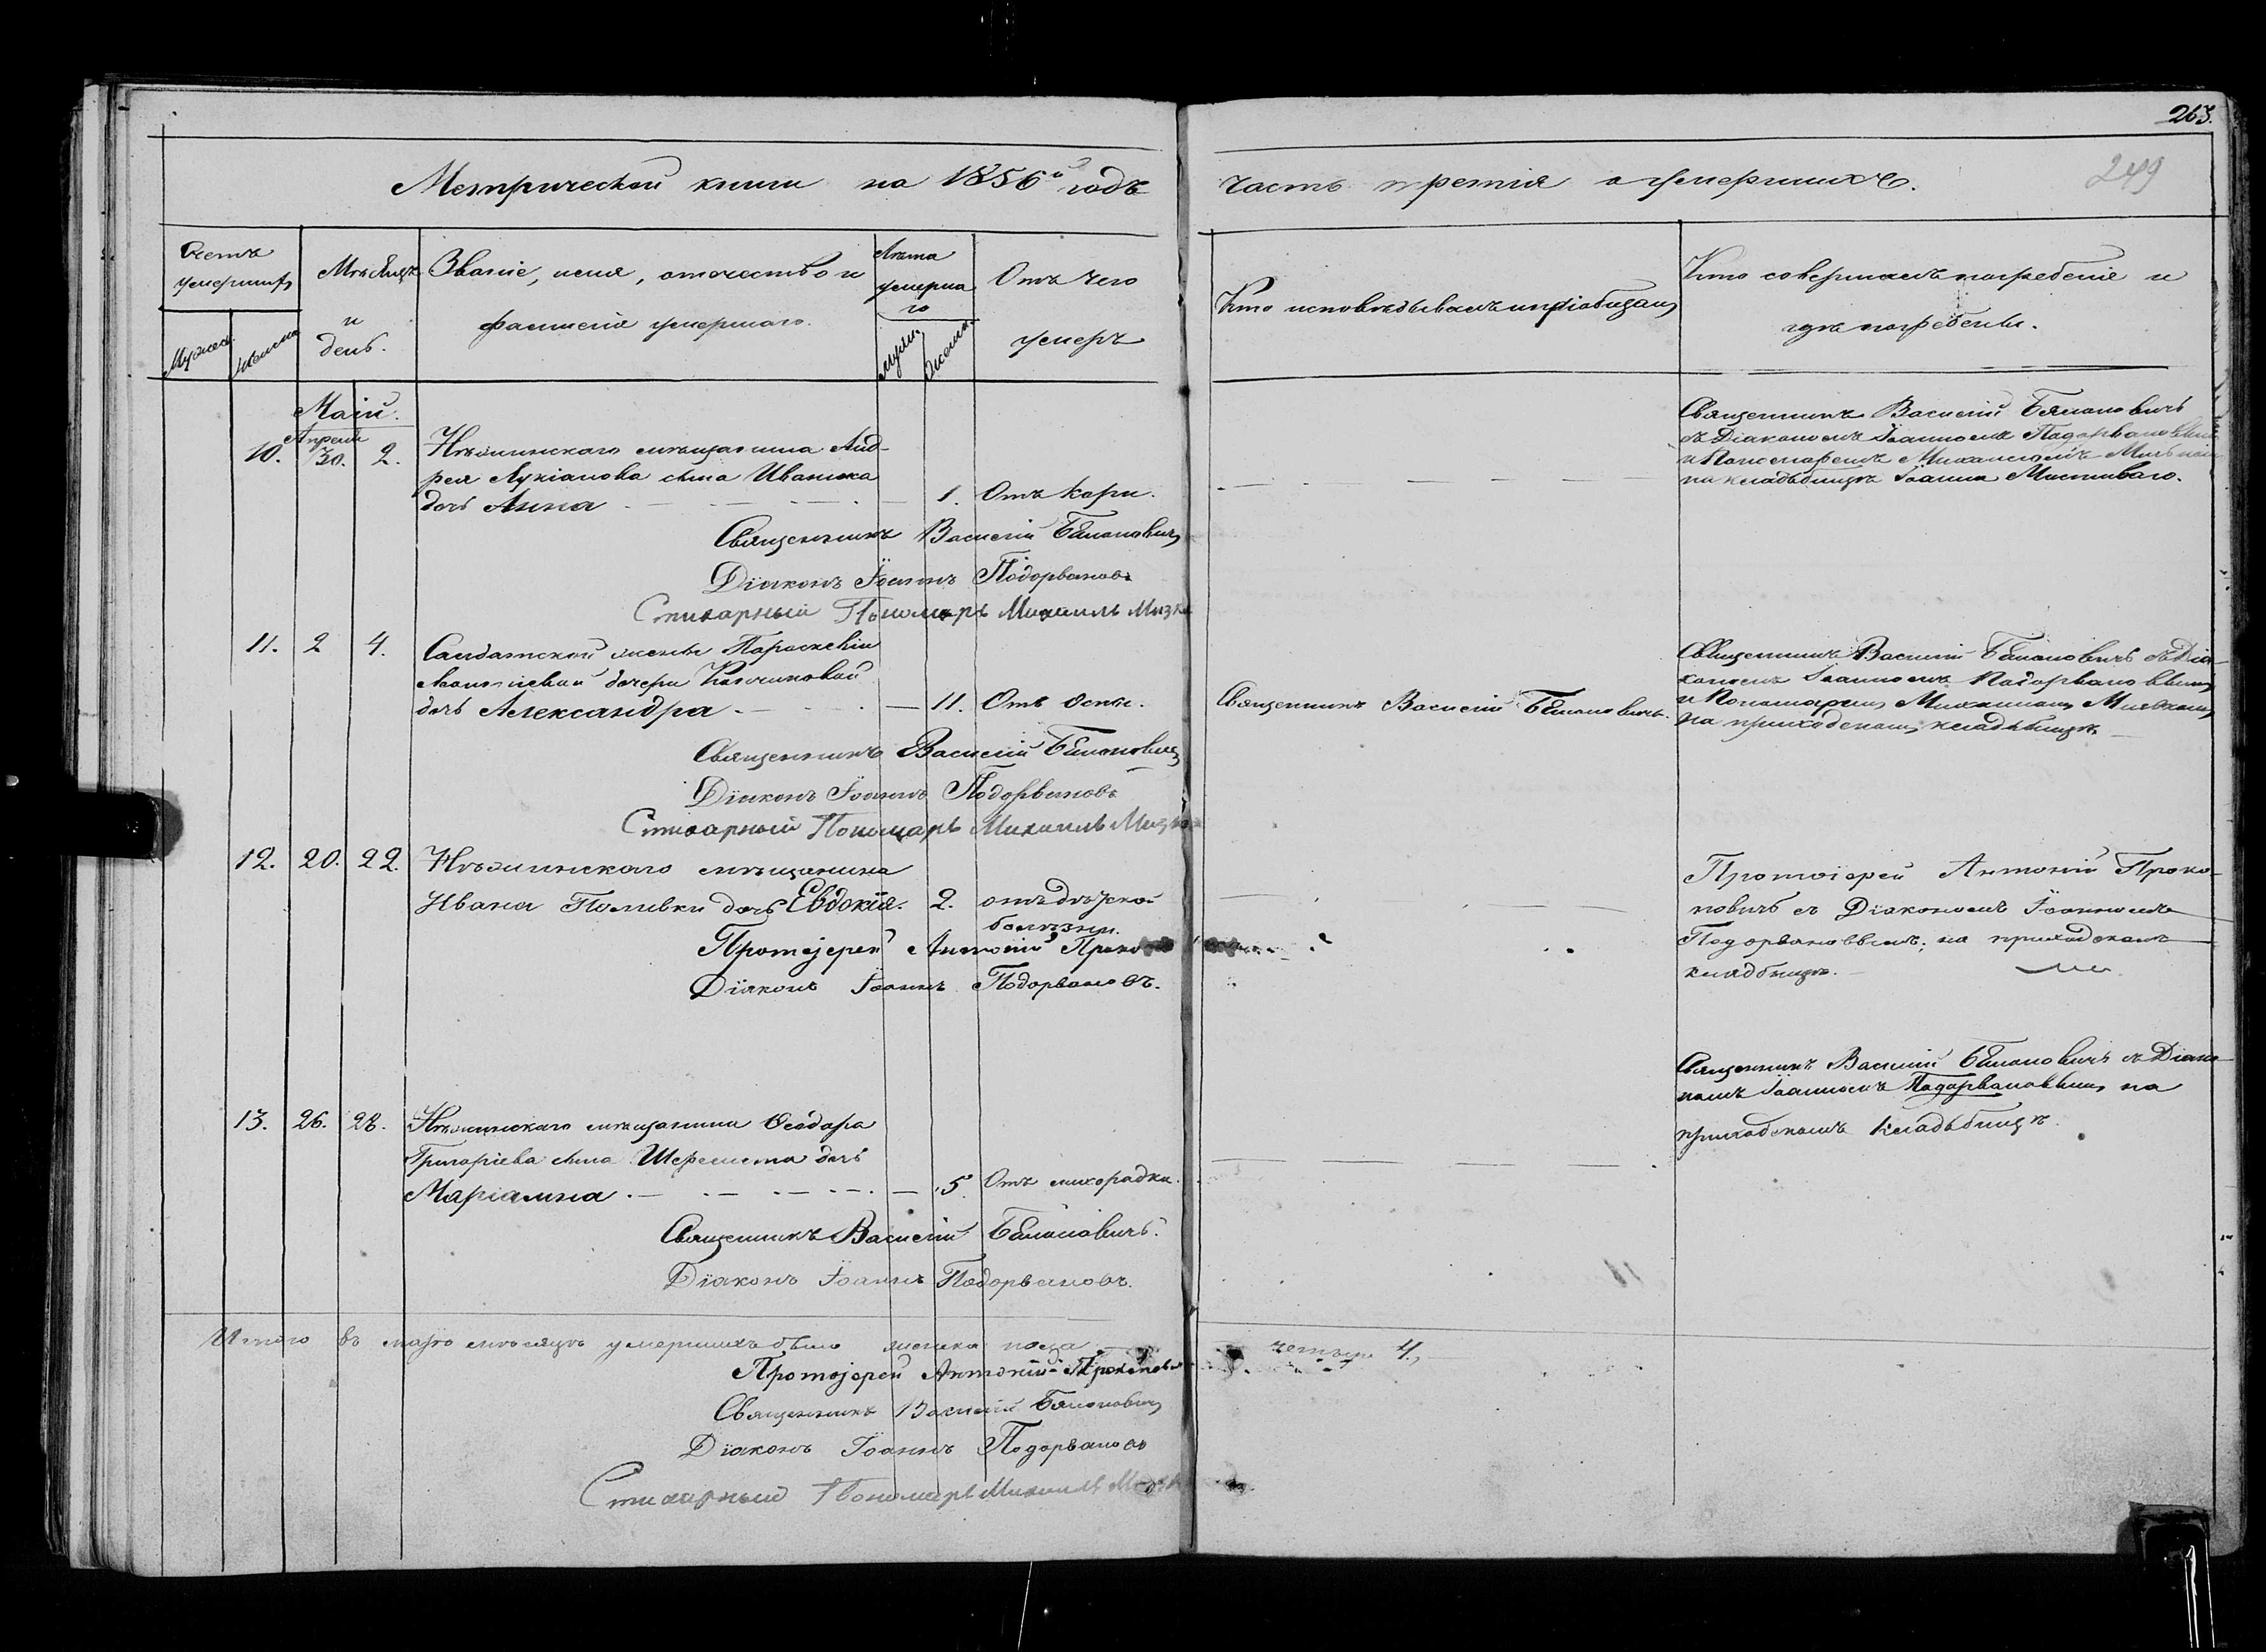 263.
249
Метрической книги на 1856й годъ часть третія о умершихъ.
Счетъ умершихъ
Мужеска
Женска
Мѣсяцъ и день.
Званіе, имя, отечество и фамилія умершаго.
Лѣта умершаго
мужск.
женск.
Отъ чего умеръ
Кто исповѣдывалъ и пріобщалъ
Кто совершалъ погребеніе и гдѣ погребены.
Маій.
Апреля
10. 30. 2. Нѣжинскаго мѣщанина Анд-
рея Лукіанова сына Иванока
дочь Анна 1. Отъ кори.
Священникъ Василій Бѣлановичъ
съ Діакономъ Іоанномъ Подорвановымъ
и Пономаремъ Михаиломъ
на кладбищѣ Іоанна Милостиваго.
Священникъ Василій Бѣлановичъ
Діаконъ Іоаннъ Подорвановъ
Стихарный Пономарь Михаилъ Мизко
11. 2 4. Салдатской жены Параскевіи
дочери
дочь Александра 11. Отъ оспы.
Священникъ Василій Бѣлановичъ.
Священникъ Василій Бѣлановичъ съ Діа-
кономъ Іоанномъ Подорвановымъ
и Пономаремъ Михаиломъ
на приходскомъ кладбищѣ.
Священникъ Василій Бѣлановичъ
Діаконъ Іоаннъ Подорвановъ
Стихарный Пономарь Михаилъ Мизко
12. 20. 22. Нѣжинскаго мѣщанина
Ивана Поливки дочь Евдокія. 2. отъ дѣтской
болѣзни.
Протоіерей Антоній Проко-
повичъ съ Діакономъ Іоанномъ
Подорвановымъ; на приходскомъ
кладбищѣ.
Протоіерей Антоній
Діаконъ Іоаннъ Подорвановъ.
13. 26. 28. Нѣжинскаго мѣщанина Ѳеодора
Григоріева сына Шеремета дочь
Маріамна 5. Отъ лихорадки.
Священникъ Василій Бѣлановичъ съ Діако-
номъ Іоанномъ Подорвановымъ на
приходскомъ кладбищѣ.
Священникъ Василій Бѣлановичъ.
Діаконъ Іоаннъ Подорвановъ.
Итого въ маѣ мѣсяцѣ умершихъ было женска пола четыре 4.
Протоіерей Антоній Прокопович
Священникъ Василій Бѣлановичъ
Діаконъ Іоаннъ Подорвановъ
Стихарный Пономарь Михаилъ